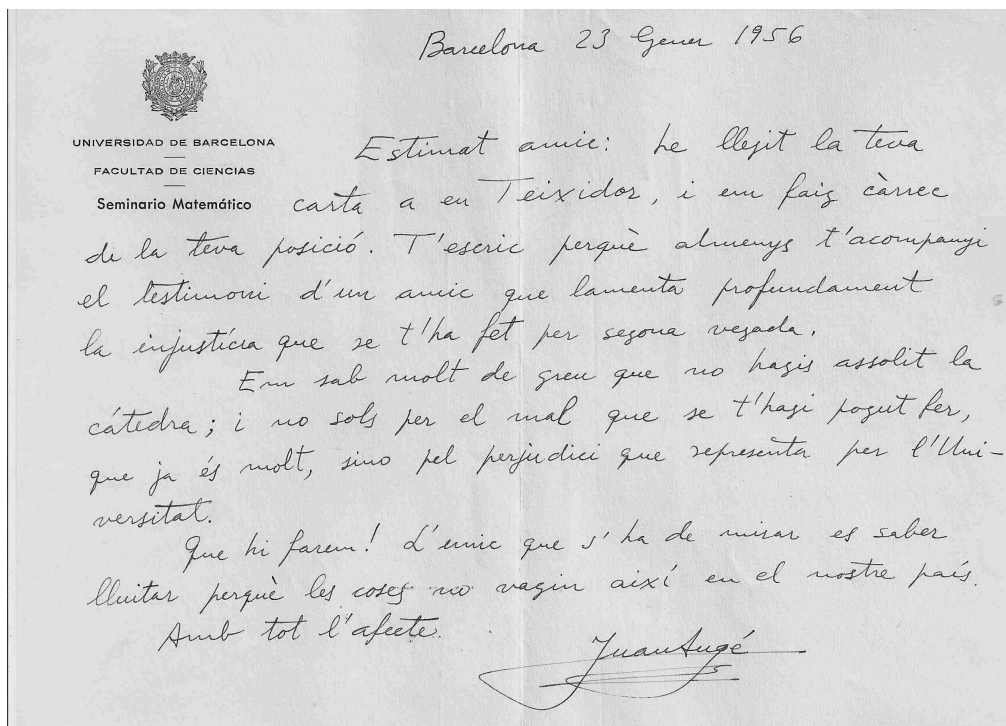 Barcelona 23 Gener 1956
UNIVERSIDAD DE BARCELONA
FACULTAD DE CIENCIAS
Seminario Matemático
Estimat amic: he llegit la teva
carta a en Teixidor, i em faig càrrec
de la teva posició. T'escric perquè almenys t'acompanyi
el testimoni d'un amic que lamenta profundament
la injustícia que se t'ha fet per segona vegada.
Em sab molt de greu que no hagis assolit la
cátedra; i no sols per el mal que se t'hagi pogut fer,
que ja és molt, sino pel perjudici que representa per l'Uni-
versitat.
Que hi farem! L'unic que s'ha de mirar es saber
lluitar perquè les coses no vagin així en el nostre país.
Amb tot l'afecte.
Juan Augé